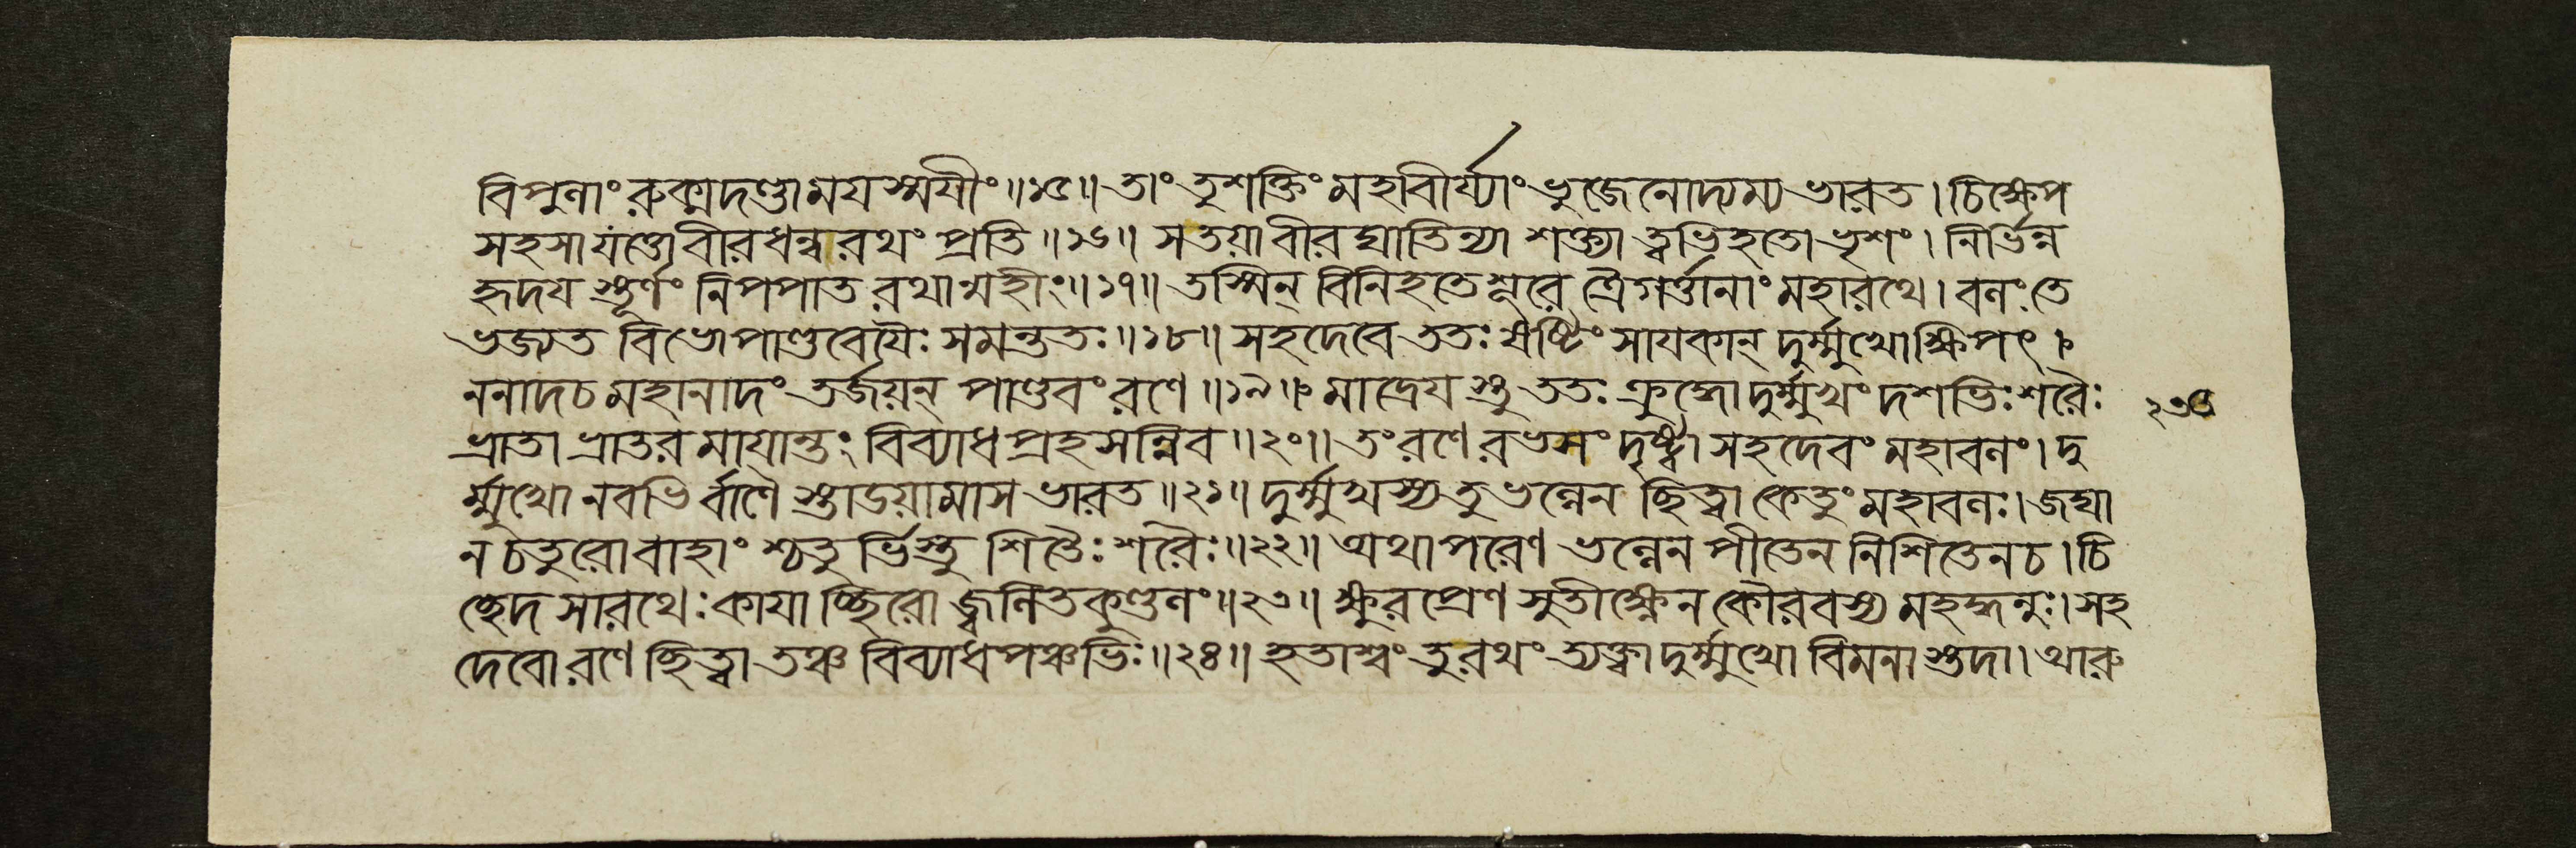 বিপুলাং রুক্মদণ্ডামযস্মযীং॥১৫॥ তাং তুশক্তিং মহাবীর্য্যাং ভুজেনোদ্যম্য ভারত। চিক্ষেপ
সহসাযত্তোবীরধন্বরথং প্রতি॥১৬॥ সতয়াবীরঘাতিন্যা শক্ত্যা ত্বভিহতো ভৃশং। নির্ভিন্ন
হৃদয স্তূর্ণং নিপপাত রথান্মহীং॥১৭॥ তস্মিন্ বিনিহতেশূরে ত্রৈগর্ত্তানাং মহারথে। বলংতে
ভজ্যত বিভোপাণ্ডবেযৈঃ সমন্ততঃ॥১৮॥ সহদেবে ততঃ ষষ্টিং সাযকান্ দুর্ম্মুখোক্ষিপৎ।
ননাদচ মহানাদং তর্জয়ন্ পাণ্ডবং রণে॥১৯॥ মাদ্রেয স্তু ততঃ ক্রুদ্ধো দুর্ম্মুখং দশভিঃ শরৈঃ
ভ্রাতা ভ্রাতর মাযান্তং বিব্যাধ প্রহসন্নিব॥২০॥ তং রণে রভসং দৃষ্ট্বা সহদেবং মহাবলং। দু
র্ম্মুখো নবভি র্বাণৈ স্তাডয়ামাস ভারত॥২১॥ দুর্ম্মুখস্য তু ভল্লেন ছিত্বা কেতুং মহাবলঃ। জঘা
ন চতুরোবাহাং শ্চতু র্ভিস্তু শিতৈঃ শরৈঃ॥২২॥ অথাপরেণ ভল্লেন পীতেন নিশিতেনচ। চি
চ্ছেদ সারথেঃ কাযা চ্ছিরো জ্বলিতকুণ্ডলং॥২৩॥ ক্ষুরপ্রেণ সুতীক্ষ্ণেন কৌরবস্য মহদ্ধনুঃ। সহ
দেবো রণে ছিত্বা তঞ্চ বিব্যাধ পঞ্চভিঃ॥২৪॥ হতাশ্বং তু রথং ত্যক্ত্বা দুর্ম্মুখো বিমনা স্তদা। আরু